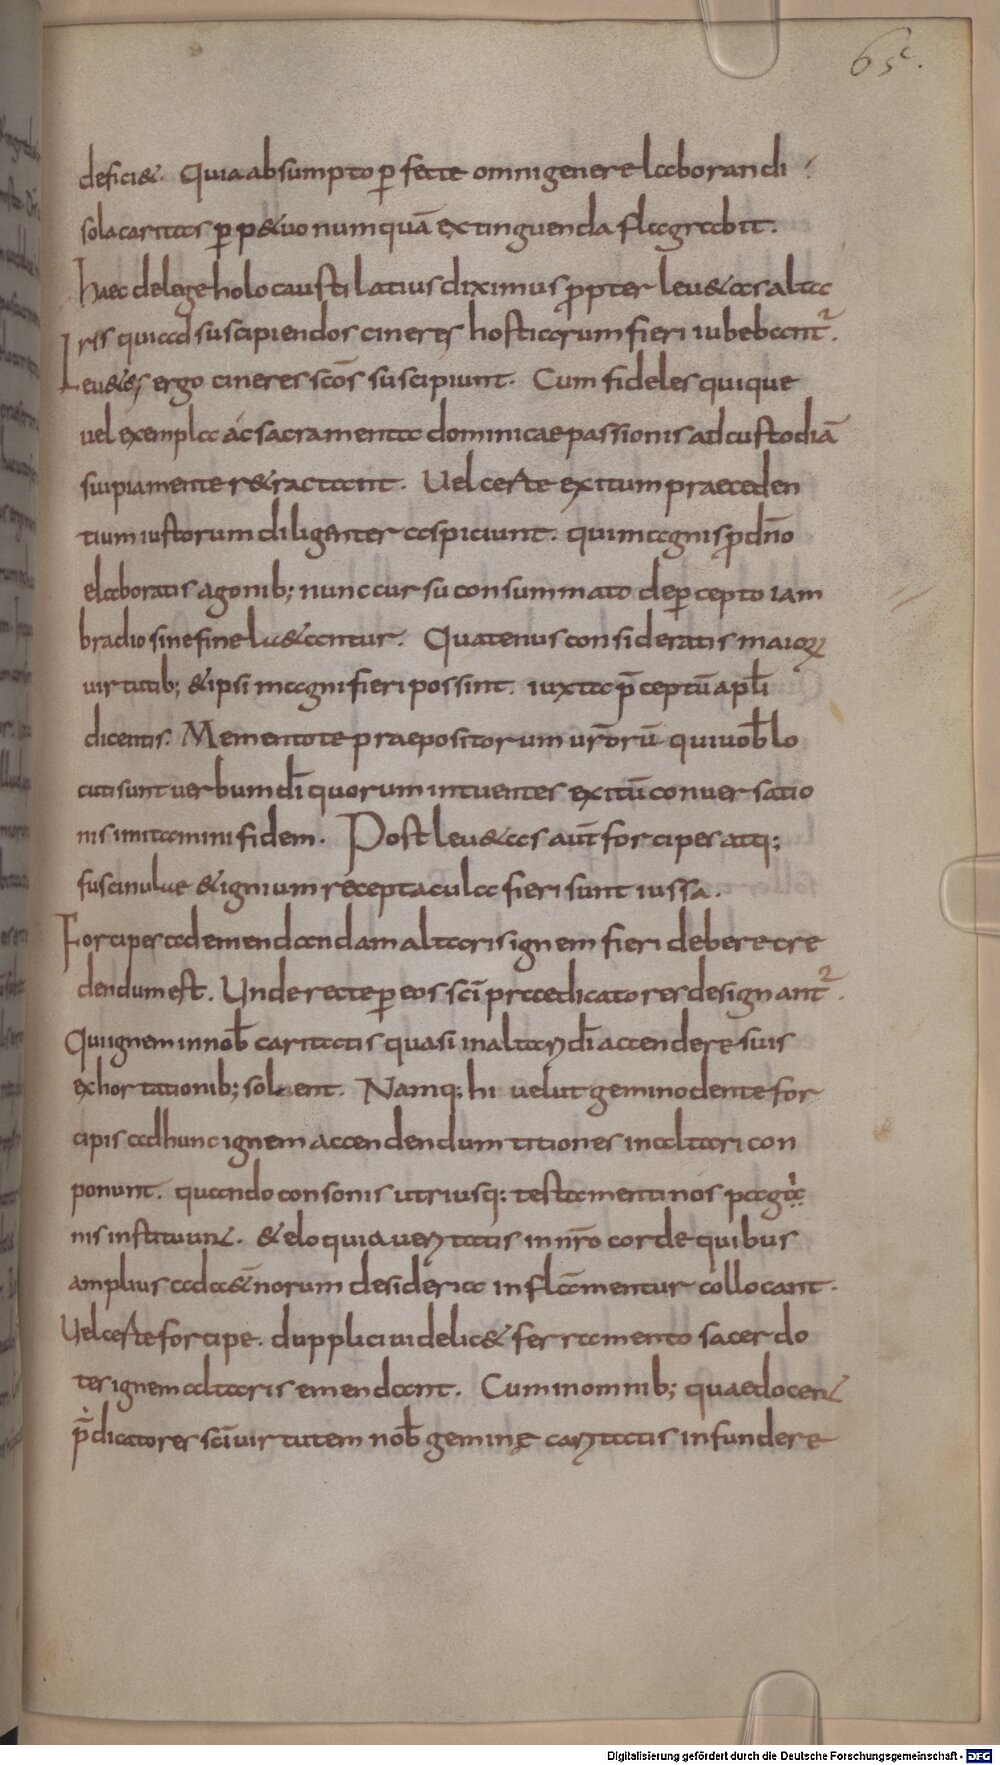 65.
defici&. Quia absumpto ꝑfecte omni genere laborandi
sola caritas ꝑp&uo numquā extinguenda flagrabit.
haec de lege holocausti latius diximus ꝓpter leu&as alta
ris qui ad suscipiendos cineres hostiarum fieri iubebant᷑.
Leu&es ergo cineres scōs suscipiunt. Cum fideles quique
uel exempla ac sacramenta dominicae passionis ad custodiā
sui pia mente r&ractant. Uel certe exitum praeceden
tium iustorum diligenter aspiciunt. qui magnis ꝓ dn̄o
elaboratis agonib; nunc cursu consummato de ꝑcepto iam
brauio sine fine l&antur. Quatenus consideratis maioꝝ
uirtutib; & ipsi magni fieri possint. iuxta p̄ceptū apl̄i
dicentis. Mementote praepositorum ur̄orū qui uob̄ lo
cuti sunt uerbum dī quorum intuentes exitū conuersatio
nis imitamini fidem. Post leu&as aut̄ forcipes atq;
fuscinulae & ignium receptacula fieri sunt iussa.
Forcipes ad emendandam altaris ignem fieri debere cre
dendum est. Unde recte ꝑ eos sc̄i praedicatores designant᷑.
Qui ignem in nob̄ caritatis quasi in altari dī accendere suis
exhortationib; solent. Namq; hi uelut gemino dente for
cipis ad hunc ignem accendendum titiones in altari con
ponunt. quando consonis utriusq; testamenti nos pagi
nis instituunt. & eloquia ueritatis in nr̄o corde quibus
amplius ad a&ernorum desideria inflammentur collocant.
Uel certe forcipe. dupplici uidelic& ferramento sacerdo
tes ignem altaris emendant. Cum in omnib; quae docent
p̄dicatores sc̄i uirtutem nob̄ geminę caritatis infundere
Digitalisierung gefördert durch die Deutsche Forschungsgemeinschaft - DFG